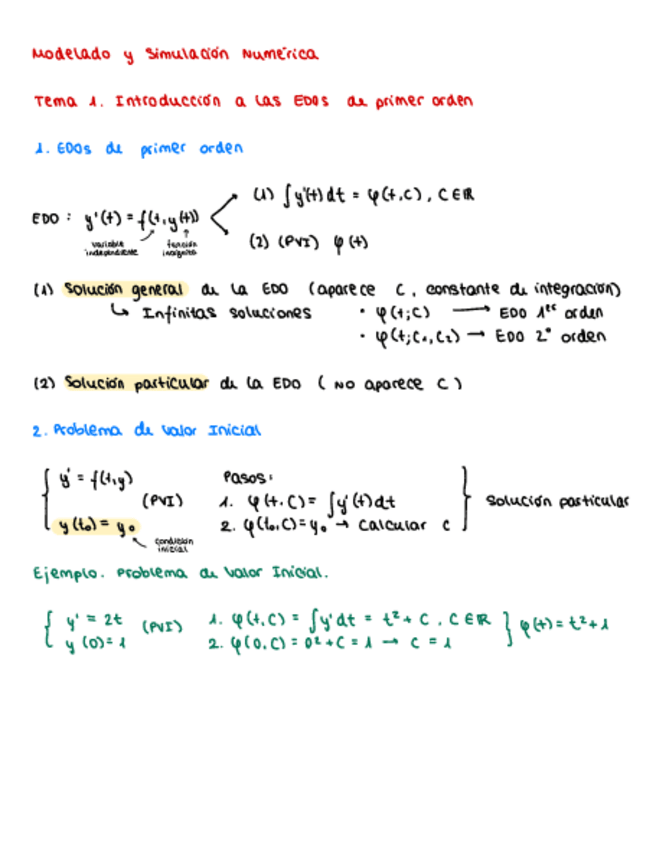 Modelado y Simulación Numérica
Tema 1. Introducción a las EDOs de primer orden
1. EDOs de primer orden
(1) ∫y'(t)dt = φ(t,C), C∈ℝ
EDO: y'(t) = f(t,y(t))
variable independiente
función incógnita
(2) (PVI) φ(t)
(1) Solución general de la EDO (aparece C, constante de integración)
↳ Infinitas soluciones · φ(t;C) → EDO 1er orden
· φ(t;C₁,C₂) → EDO 2º orden
(2) Solución particular de la EDO (No aparece C)
2. Problema de Valor Inicial
y' = f(t,y) Pasos:
(PVI) 1. φ(t,C) = ∫y'(t)dt Solución particular
y(t₀) = y₀ 2. φ(t₀,C) = y₀ → Calcular C
condición inicial
Ejemplo. Problema de Valor Inicial.
y' = 2t (PVI) 1. φ(t,C) = ∫y'dt = t² + C, C∈ℝ φ(t) = t² + 1
y(0) = 1 2. φ(0,C) = 0² + C = 1 → C = 1